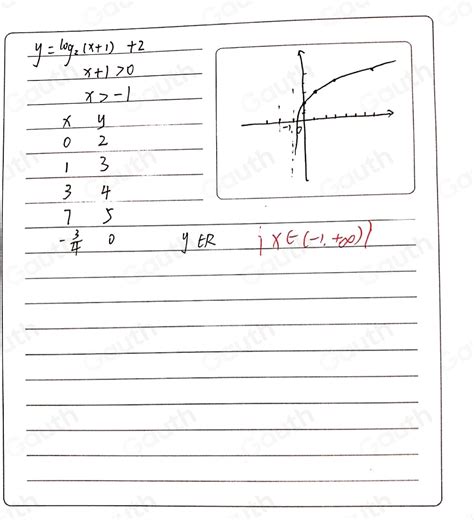 y = log₂(x+1) +2
x+1>0
x>-1
x y
0 2
1 3
3 4
7 5
-3/4 0 y ∈R {x∈(-1,+∞)}
-1 0
Gauth